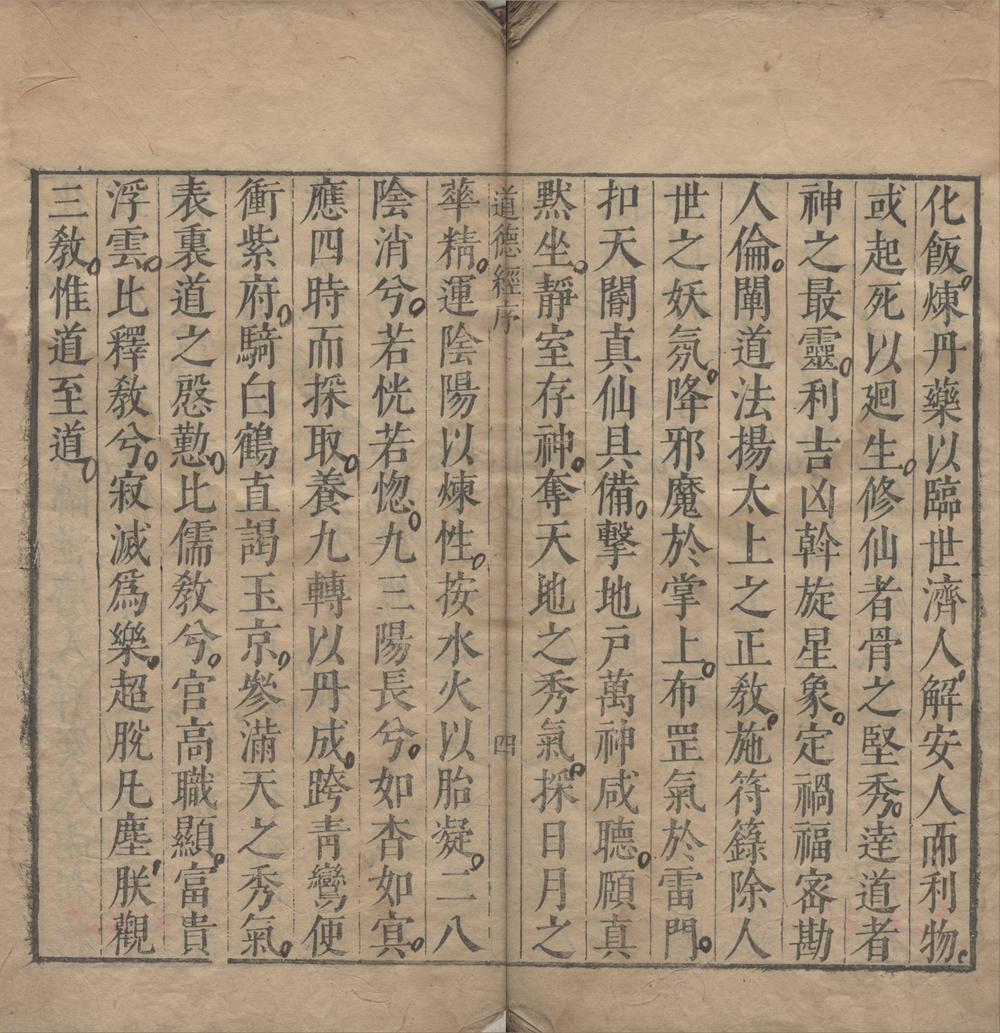 化飯。煉丹藥以臨世濟人。解安人而利物。
或起死以廻生。修仙者骨之堅秀。達道者
神之最靈。利吉凶斡旋星象。定禍福宻勘
人倫。闡道法揚太上之正敎。施符籙除人
世之妖氛。降邪魔於掌上。布罡氣於雷門。
扣天閽真仙具備。擊地戸萬神咸聽。頋真
黙坐。靜室存神。奪天地之秀氣。採日月之
道德經序 四
華精。運陰陽以煉性。按水火以胎凝。二八
陰消兮。若恍若惚。九三陽長兮。如杳如㝠。
應四時而採取。養九轉以丹成。跨青鸞便
衝紫府。騎白鶴直謁玉京。參滿天之秀氣。
表裏道之慇懃。比儒敎兮。官高職顯。富貴
浮雲。比釋敎兮。寂滅爲樂。超脫凡塵。朕觀
三敎。惟道至道。